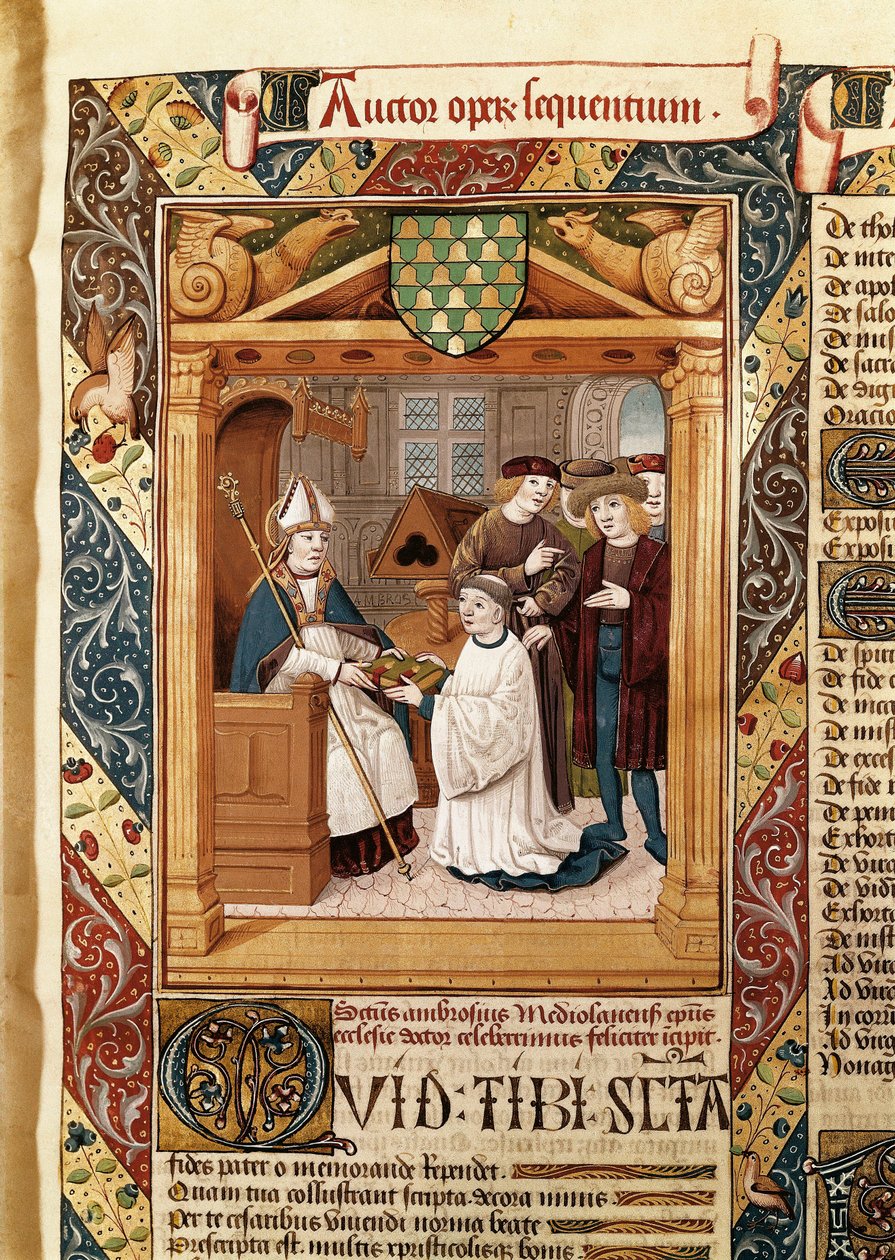 Auctor operꝫ sequentium .
AMBROS
Sctũs ambrosius Mediolanensis ep̃us
ecclesie doctor celeberrimus feliciter īcipit .
QVID : TIBI : SCT̃A
fides pater o memorande Rependet .
Quam tua collustrant scripta decora nimis .
Per te cesaribus viuendi norma beate
Prescripta est . multis xpristicolisqꝫ bonis
De
De
De apo
De salo
De mis
De sacra
De dig
Oratio
Exposi
Exposi
De spiri
De fide
De inca
De mist
De exces
De fide
De peni
Exhort
De virg
De vid
Exhort
De mist
Ad virg
Ad virg
In corru
Ad virg
Nonag